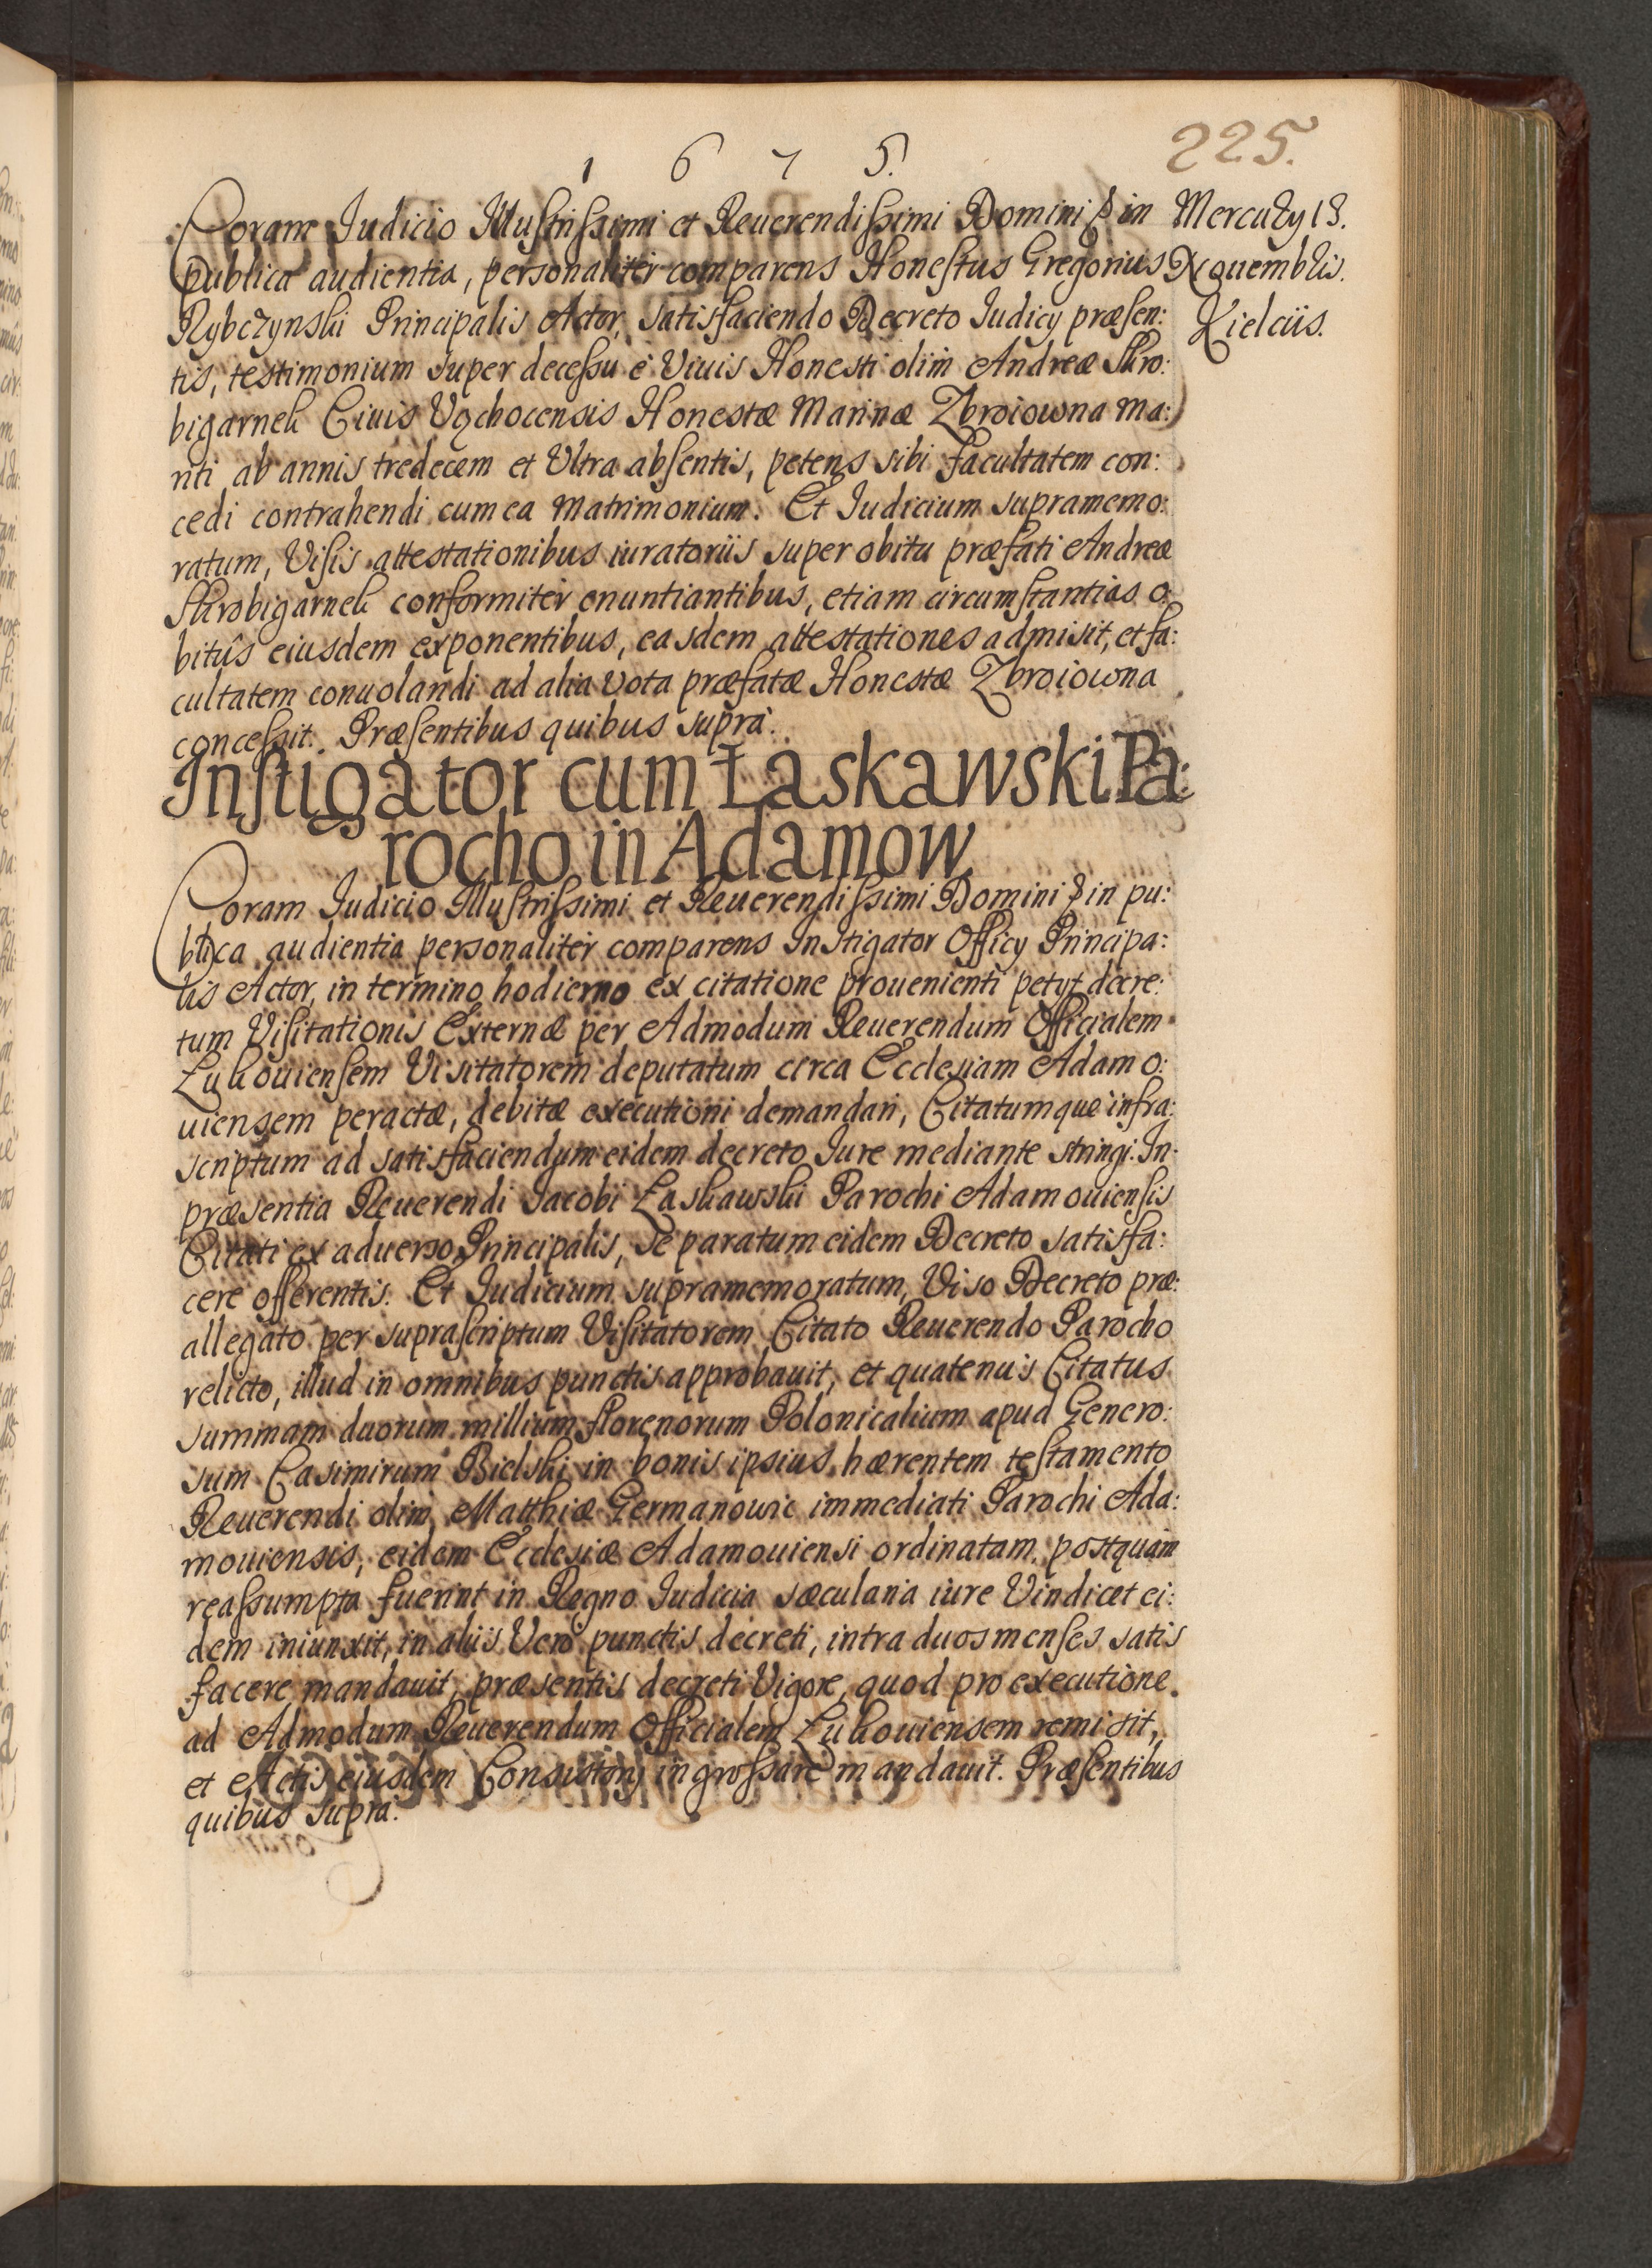 225.
1 6 7 5.
Coram Iudicio Illustrissimi et Reuerendissimi Domini & in
publica audientia, personaliter comparens Honestus Gregorius
Rybczynski Principalis Actor, satisfaciendo Decreto Iudicy præsen:
tis, testimonium super decessu è Viuis Honesti olim Andreæ Skro:
bigarnek Ciuis Vąchocensis Honestæ Marinæ Zbroiowna ma:
riti ab annis tredecem et Vltra absentis, petens sibi facultatem con:
cedi contrahendi cum ea Matrimonium. Et Iudicium supramemo:
ratum, Visis attestationibus iuratoriis super obitu præfati Andreæ
Skrobigarnek conformiter enuntiantibus, etiam circumstantias o:
bitûs eiusdem exponentibus, easdem attestationes admisit, et fa:
cultatem conuolandi ad alia Vota præfatæ Honestæ Zbroiowna
concessit. Præsentibus quibus suprà.
Mercury 13.
Nouembris.
Kielciis.
Instigator cum Łaskawski Pa:
rocho in Adamow.
Coram Iudicio Illustrissimi et Reuerendissimi Domini & in pu:
blica audientia personaliter comparens Instigator Officy Principa:
lis Actor, in termino hodierno ex citatione prouenienti petyt decre:
tum Visitationis Externæ per Admodum Reuerendum Officialem
Łukouiensem Visitatorem deputatum circa Ecclesiam Adamo:
uiensem peractæ, debitæ executioni demandari, Citatumque infra:
scriptum ad satisfaciendum eidem decreto Iure mediante stringi. In
præsentia Reuerendi Iacobi Łaskawski Parochi Adamouiensis
Citati ex aduerso Principalis, se paratum eidem Decreto satisfa:
cere offerentis. Et Iudicium supramemoratum, Viso Decreto præ:
allegato per suprascriptum Visitatorem Citato Reuerendo Parocho
relicto, illud in omnibus punctis approbauit, et quatenus Citatus
summam duorum millium florenorum Polonicalium apud Genero:
sum Casimirum Bielski in bonis ipsius hærentem testamento
Reuerendi olim Matthiæ Germanowic immediati Parochi Ada:
mouiensis, eidem Ecclesiæ Adamouiensi ordinatam, postquam
reassumpta fuerint in Regno Iudicia sæcularia iure Vindicet ei:
dem iniunxit, in aliis Vero punctis decreti, intra duos menses satis
facere mandauit, præsentis decreti Vigore, quod pro executione
ad Admodum Reuerendum Officialem Łukouiensem remisit,
et Actis eiusdem Consistory ingrossare mandauit. Præsentibus
quibus supra.